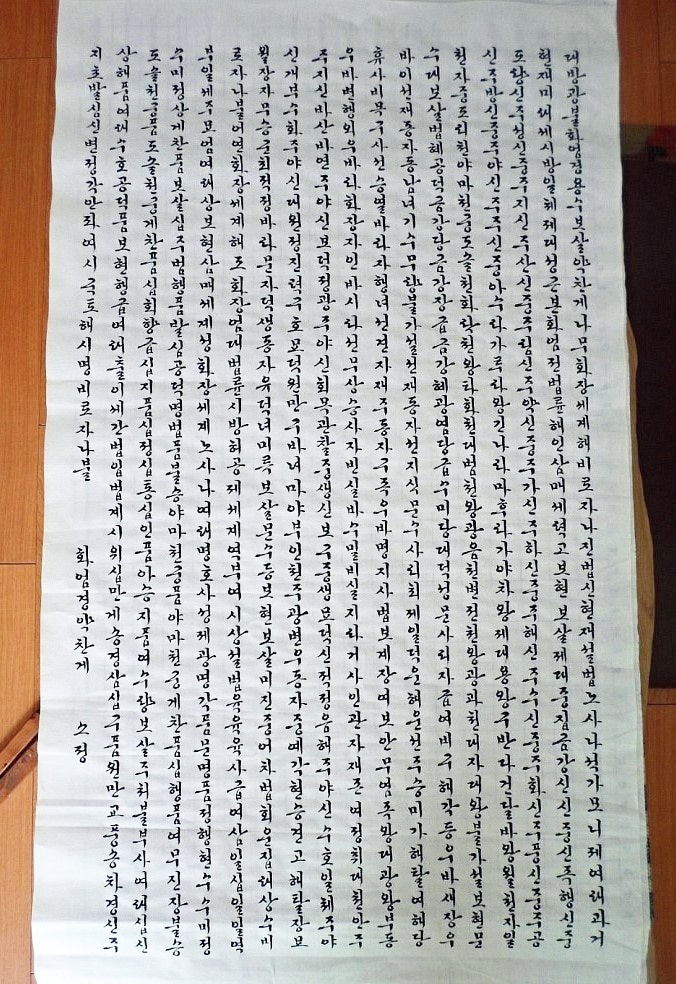 대방광불화엄경용수보살약찬게나무화장세계해비로자나진법신현재설법노사나석가모니제여래과거
현재미래세시방일체제대성근본화엄전법륜해인삼매세력고보현보살제대중집금강신신중신족행신중
도량신주성신중주지신주산신중주림신주약신중주가신주하신중주해신주수신중주화신주풍신중주공
신주방신중주야신주주신중아수라가루라왕긴나라마후라가야차왕제대용왕구반다건달바왕월천자일
천자중도리천야마천중도솔천화락천왕타화천대범천왕광음천변정천왕광과천대자대왕불가설보현문
수대보살법혜공덕금강당금강장급금강혜광염당급수미당대덕성문사리자급여비구해각등우바새장우
바이선재동자동남녀기수무량불가설선재동자선지식문수사리최제일덕운해운선주승미가해탈여해당
휴사비목구사선승열바라자행녀선견자재주동자구족우바명지사법보계장여보안무염족왕대광왕부동
우바변행외우바라화장자인바시라선무상승사자빈신바수밀비실지라거사인관자재존여정취대천안주
주지신바산바연주야신보덕정광주야신희목관찰중생신보구중생묘덕신적정음해주야신수호일체주야
신개부수화주야신대원정진력구호묘덕원만구바녀마야부인천주광변우동자중예각현승견고해탈장묘
월장자무승군최적정바라문자덕생동자유덕녀미륵보살문수등보현보살미진중어차법회운집래상수비
로자나불어연화장세계해조화장엄대법륜시방허공제세계역부여시상설법육육육사급여삼일십일일역
부일세주묘엄여래상보현삼매세계성화장세계노사나여래명호사성제광명각품문명품정행현수수미정
수미정상게찬품보살십주범행품발심공덕명법품불승야마천궁품야마천궁게찬품십행품여무진장불승
도솔천궁품도솔천궁게찬품십회향급십지품십정십통십인품아승지품여수량보살주처불부사여래십신
상해품여래수호공덕품보현행급여래출이세간법입법계시위십만게송경삼십구품원만교풍송차경신수
지초발심신변정각안좌여시국토해시명비로자나불
화엄경약찬게 소정